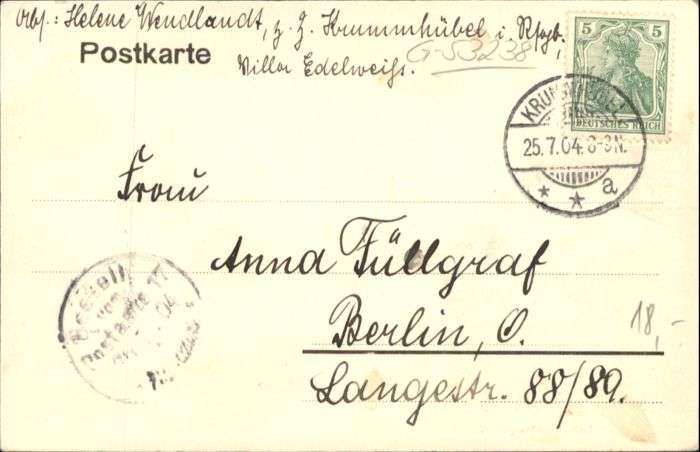 Abs.: Helene Wendlandt, z. Z. Krummhübel i. Rsgb.,
Postkarte
Villa Edelweiß.
G-S3238
5 5
DEUTSCHES REICH
KRUMMHÜBEL
25.7.04. 8-9N.
* * a
Frau
Anna Füllgraf
Berlin, O.
Langestr. 88/89.
18,-
Bestellt
Postamte 17
04